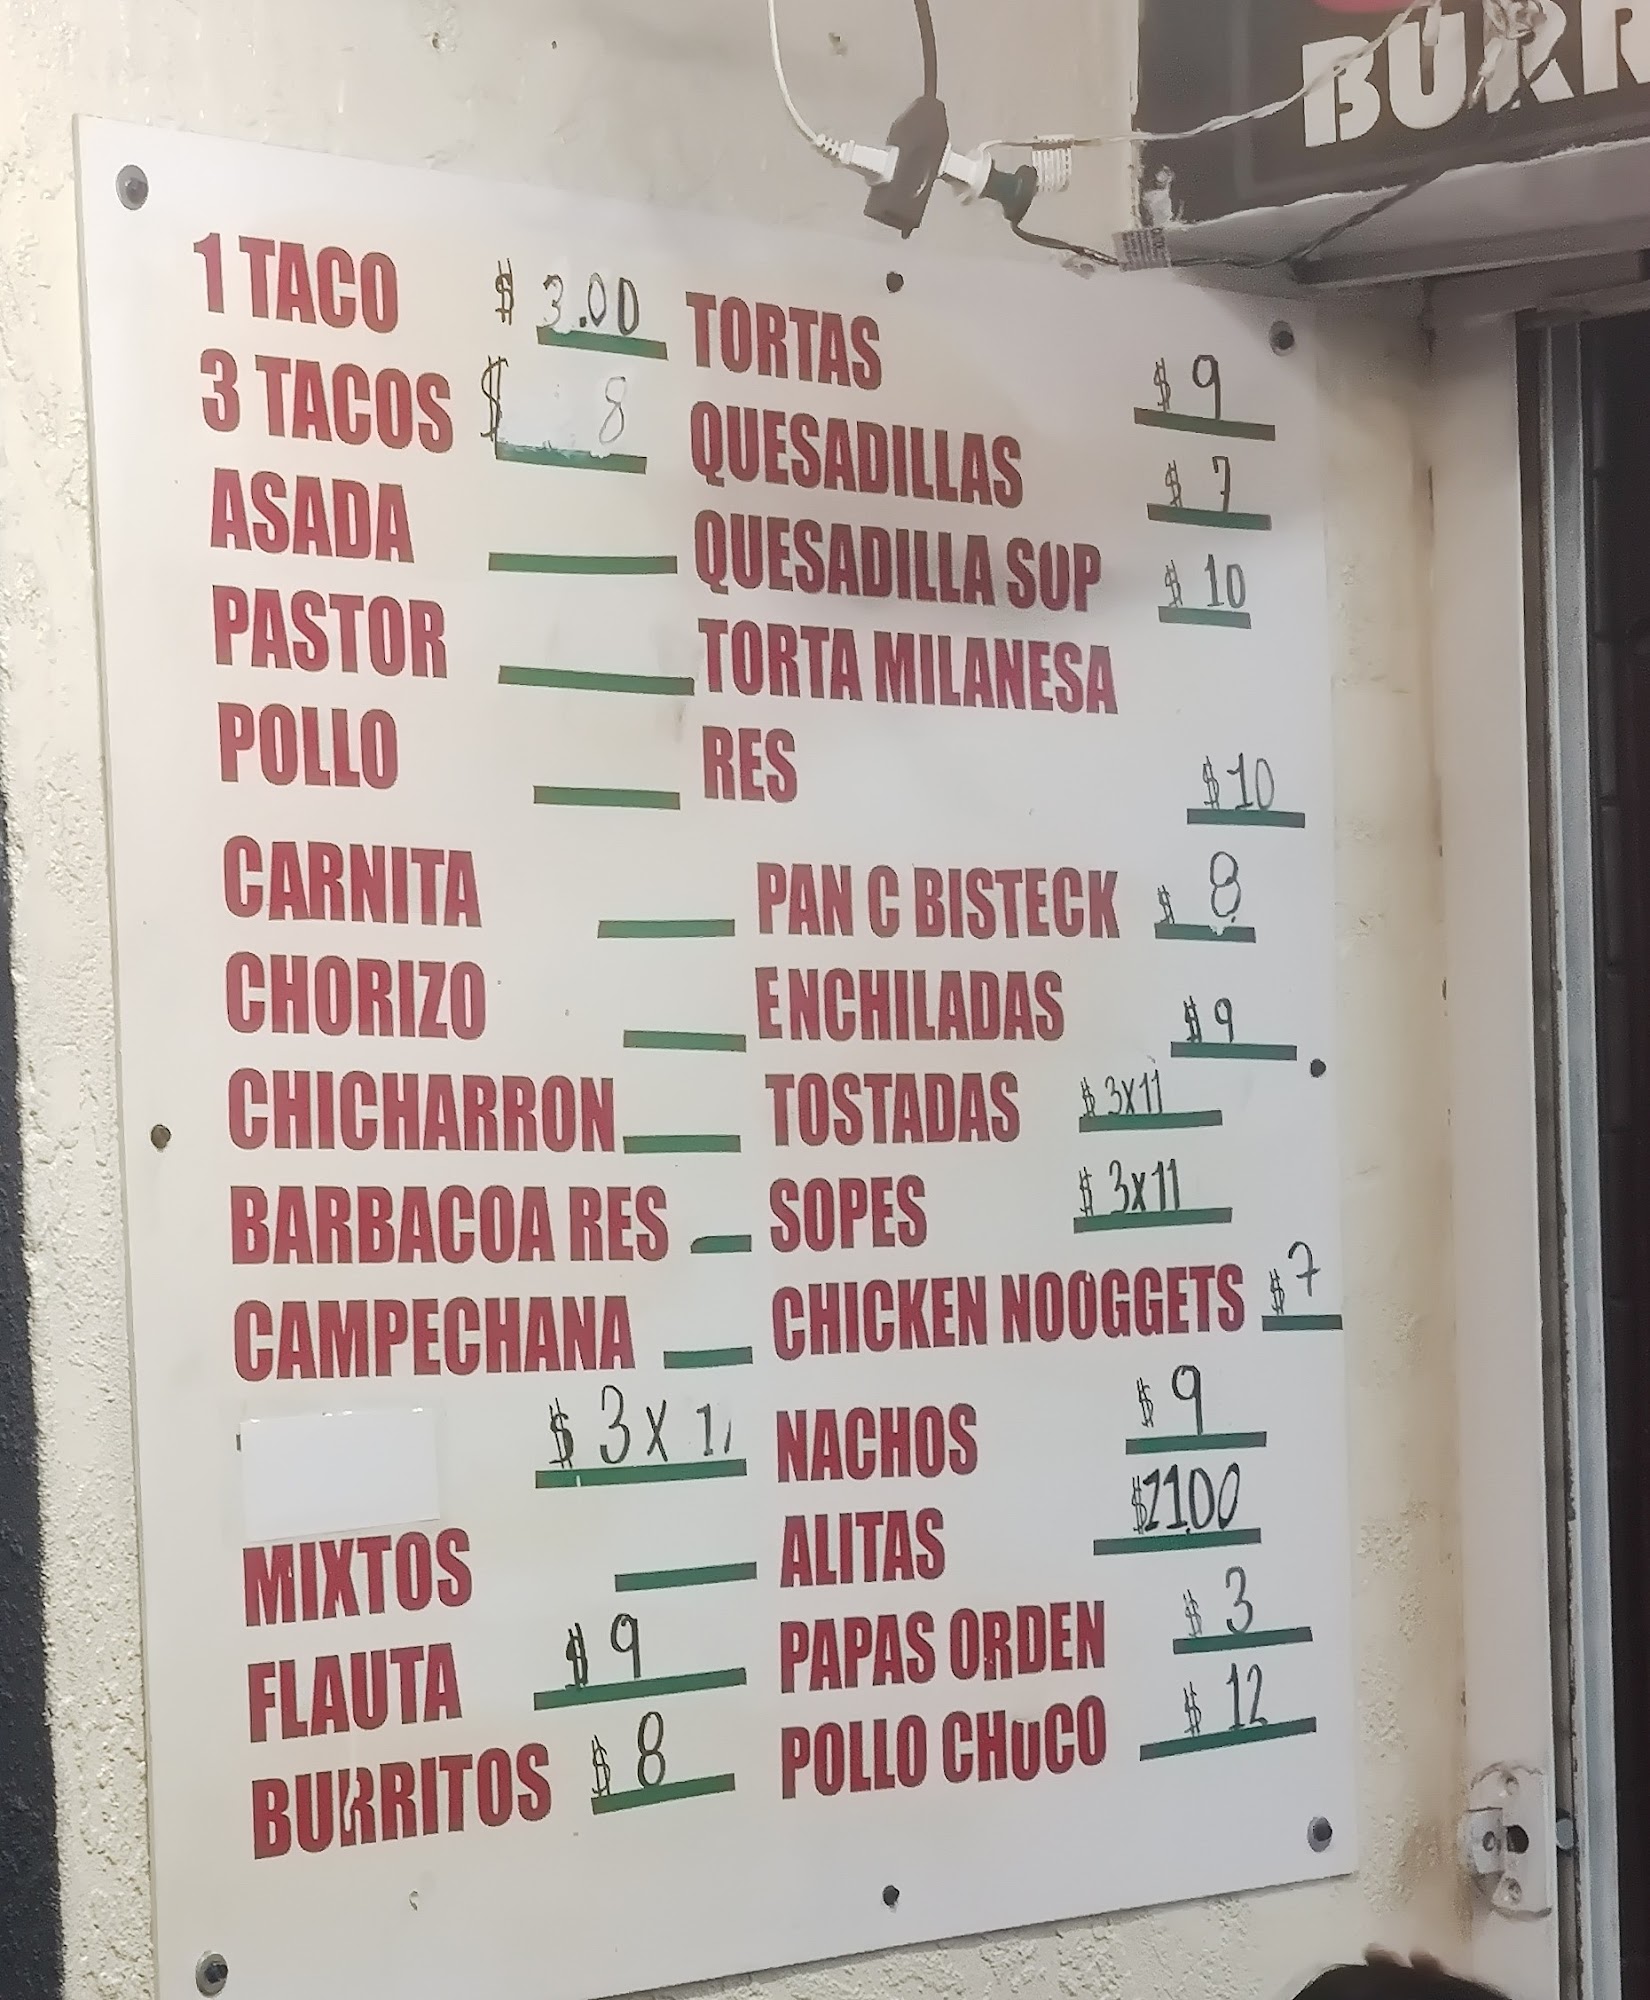 BURR
1 TACO $ 3.00
3 TACOS $ 8
ASADA
PASTOR
POLLO
CARNITA
CHORIZO
CHICHARRON
BARBACOA RES
CAMPECHANA
$ 3 X
MIXTOS
FLAUTA $ 9
BURRITOS $ 8
TORTAS $ 9
QUESADILLAS $ 7
QUESADILLA SUP $ 10
TORTA MILANESA
RES $ 10
PAN C BISTECK $ 8
ENCHILADAS $ 9
TOSTADAS $ 3x11
SOPES $ 3x11
CHICKEN NOOGGETS $ 7
NACHOS $ 9
ALITAS $11.00
PAPAS ORDEN $ 3
POLLO CHUCO $ 12